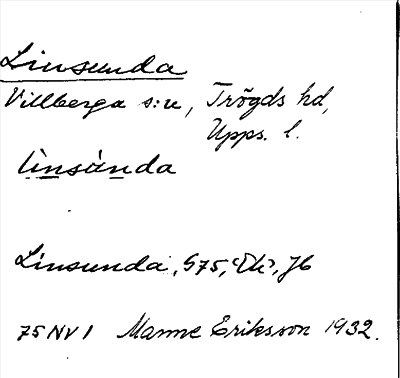 Linsunda
Villberga s:n, Trögds hd,
Upps. l.
linsùnda
Linsunda, G75, Ek, Jb
75 NV 1 Manne Eriksson 1932.